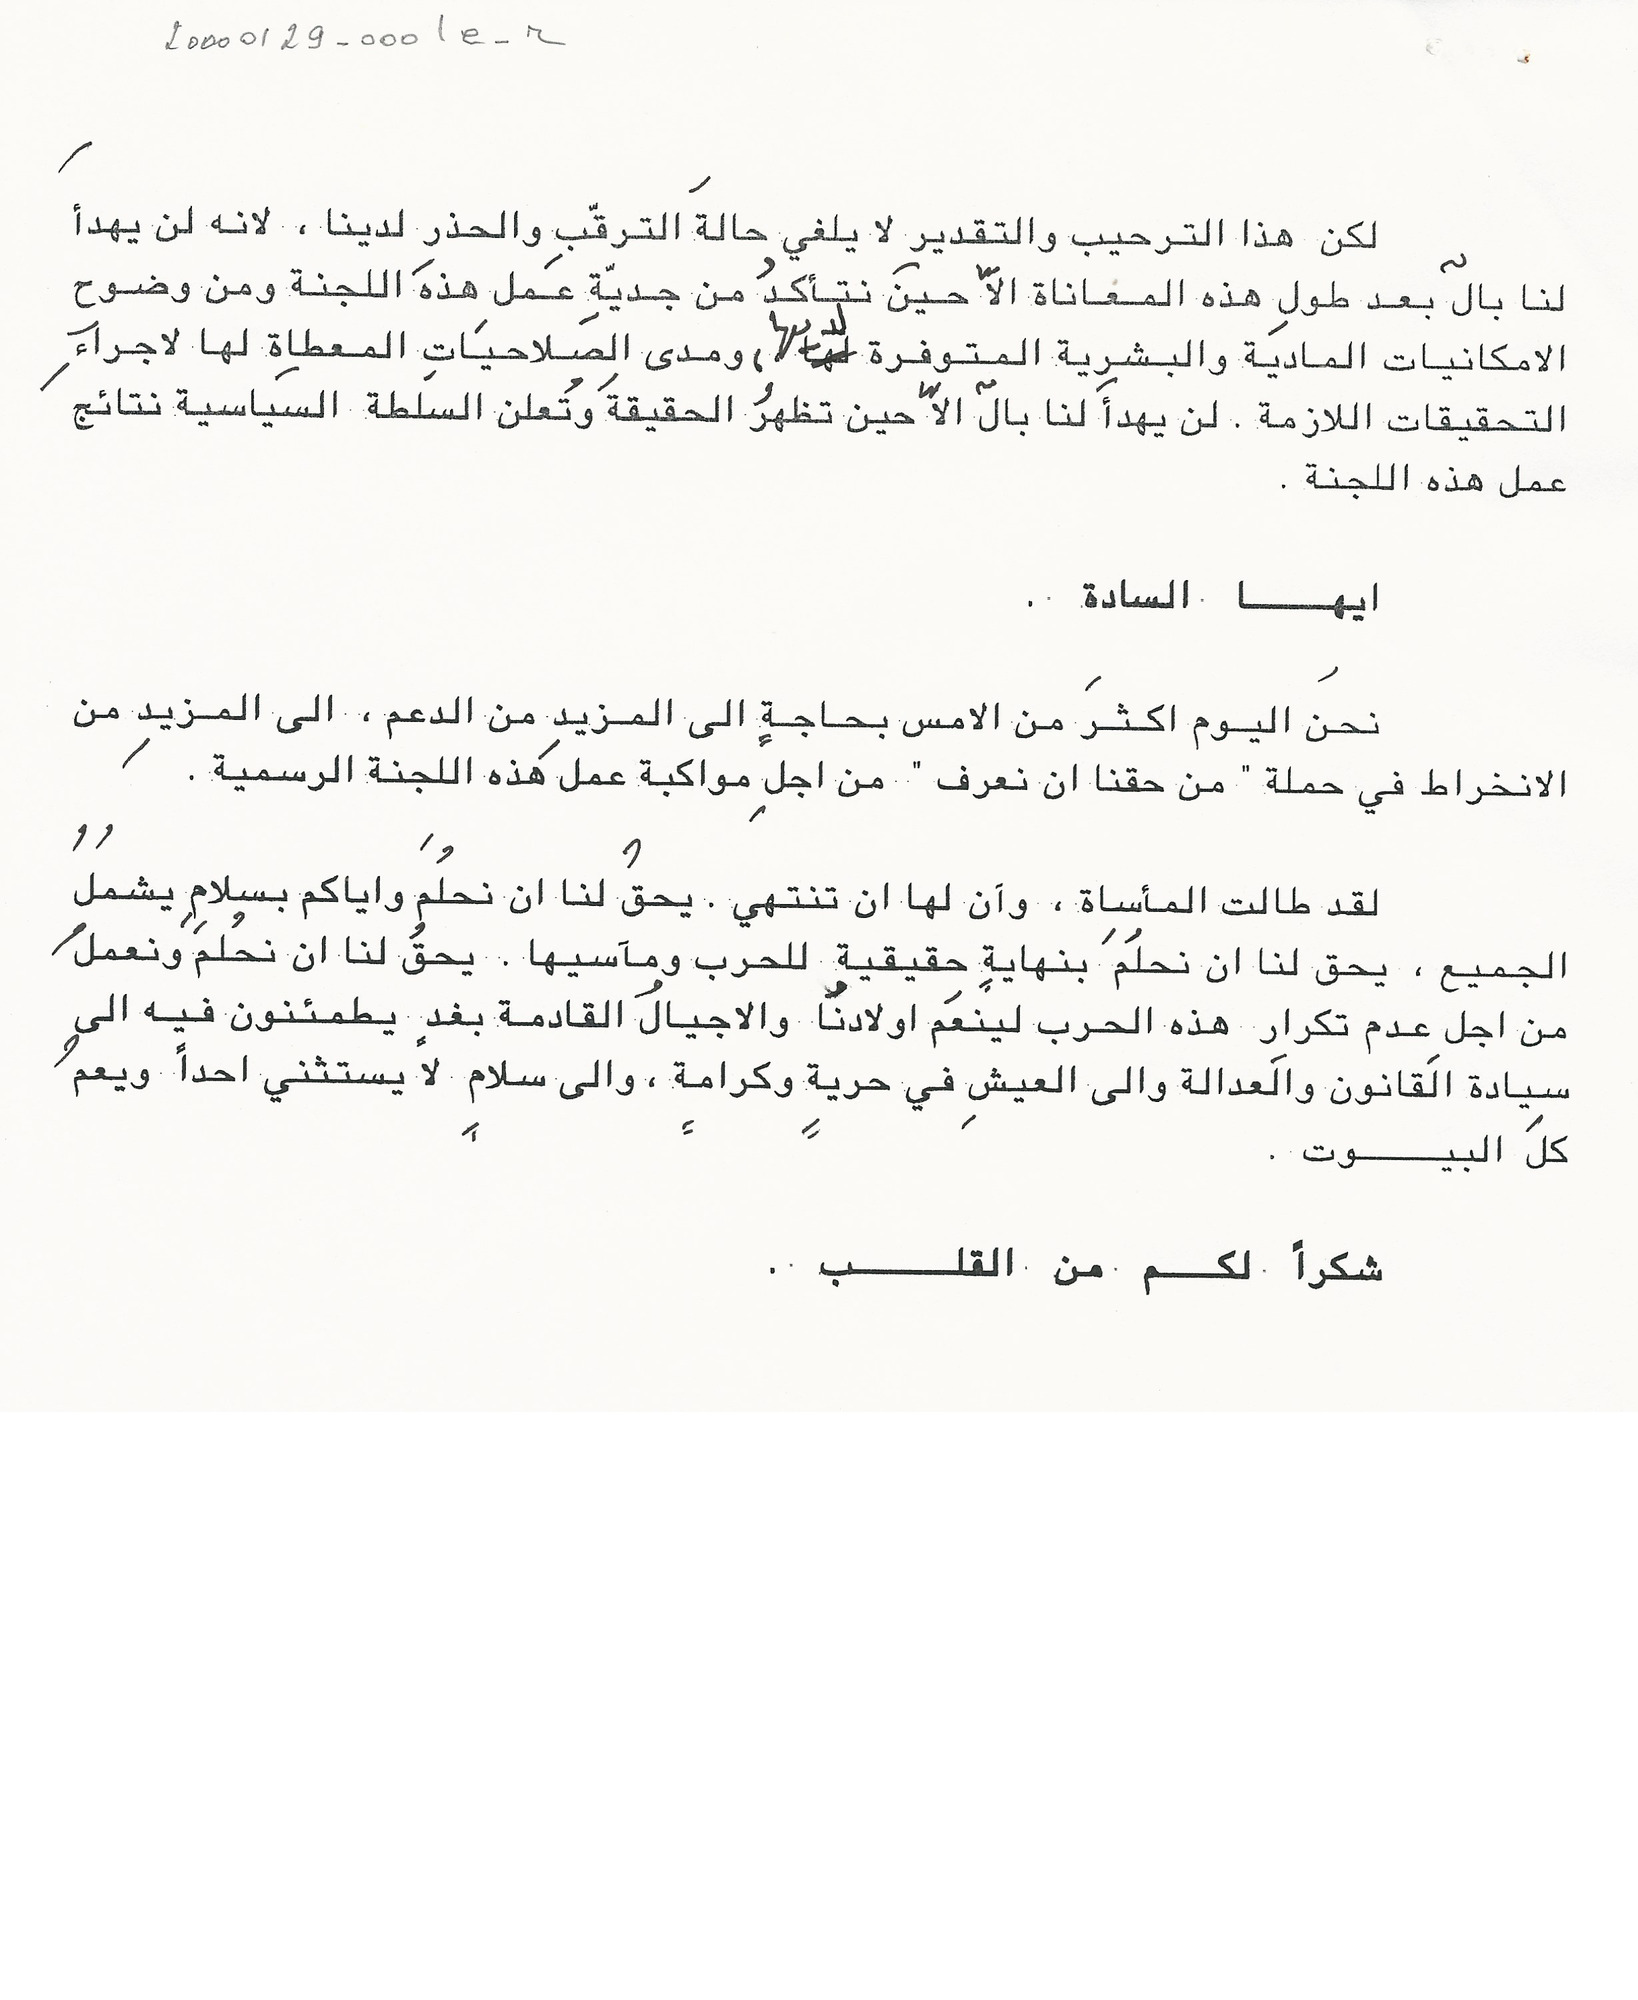 20000129_0001e_r
لكن هذا الترحيب والتقدير لا يلغي حالةَ الترقّبِ والحذرِ لدينا ، لانه لن يهدأَ
لنا بالٌ بعد طولِ هذه المعاناة الاّ حينَ نتأكدُ من جديّةِ عملِ هذه اللجنة ومن وضوح
الامكانيات المادية والبشرية المتوفرة لديها ، ومدى الصلاحياتِ المعطاةِ لها لاجراءِ
التحقيقات اللازمة . لن يهدأَ لنا بالٌ الاّ حين تظهرُ الحقيقةُ وتُعلن السلطة السياسية نتائج
عمل هذه اللجنة .
ايهـــا السادة .
نحنُ اليوم اكثرَ من الامس بحاجةٍ الى المزيدِ من الدعم ، الى المزيدِ من
الانخراط في حملة " من حقنا ان نعرف " من اجلِ مواكبة عمل هذه اللجنة الرسمية .
لقد طالت المأساة ، وآن لها ان تنتهي . يحقُ لنا ان نحلُمَ واياكم بسلامٍ يشملُ
الجميع ، يحق لنا ان نحلُمَ بنهايةٍ حقيقيةٍ للحرب ومآسيها . يحقُ لنا ان نحلُمَ ونعملَ
من اجل عدم تكرار هذه الحرب لينعَم اولادنُا والاجيالُ القادمة بغدٍ يطمئنون فيه الى
سيادة القانون والعدالة والى العيشِ في حريةٍ وكرامةٍ ، والى سلامٍ لا يستثني احداً ويعمُ
كلَ البيـــوت .
شكراً لكـــم من القلـــب .